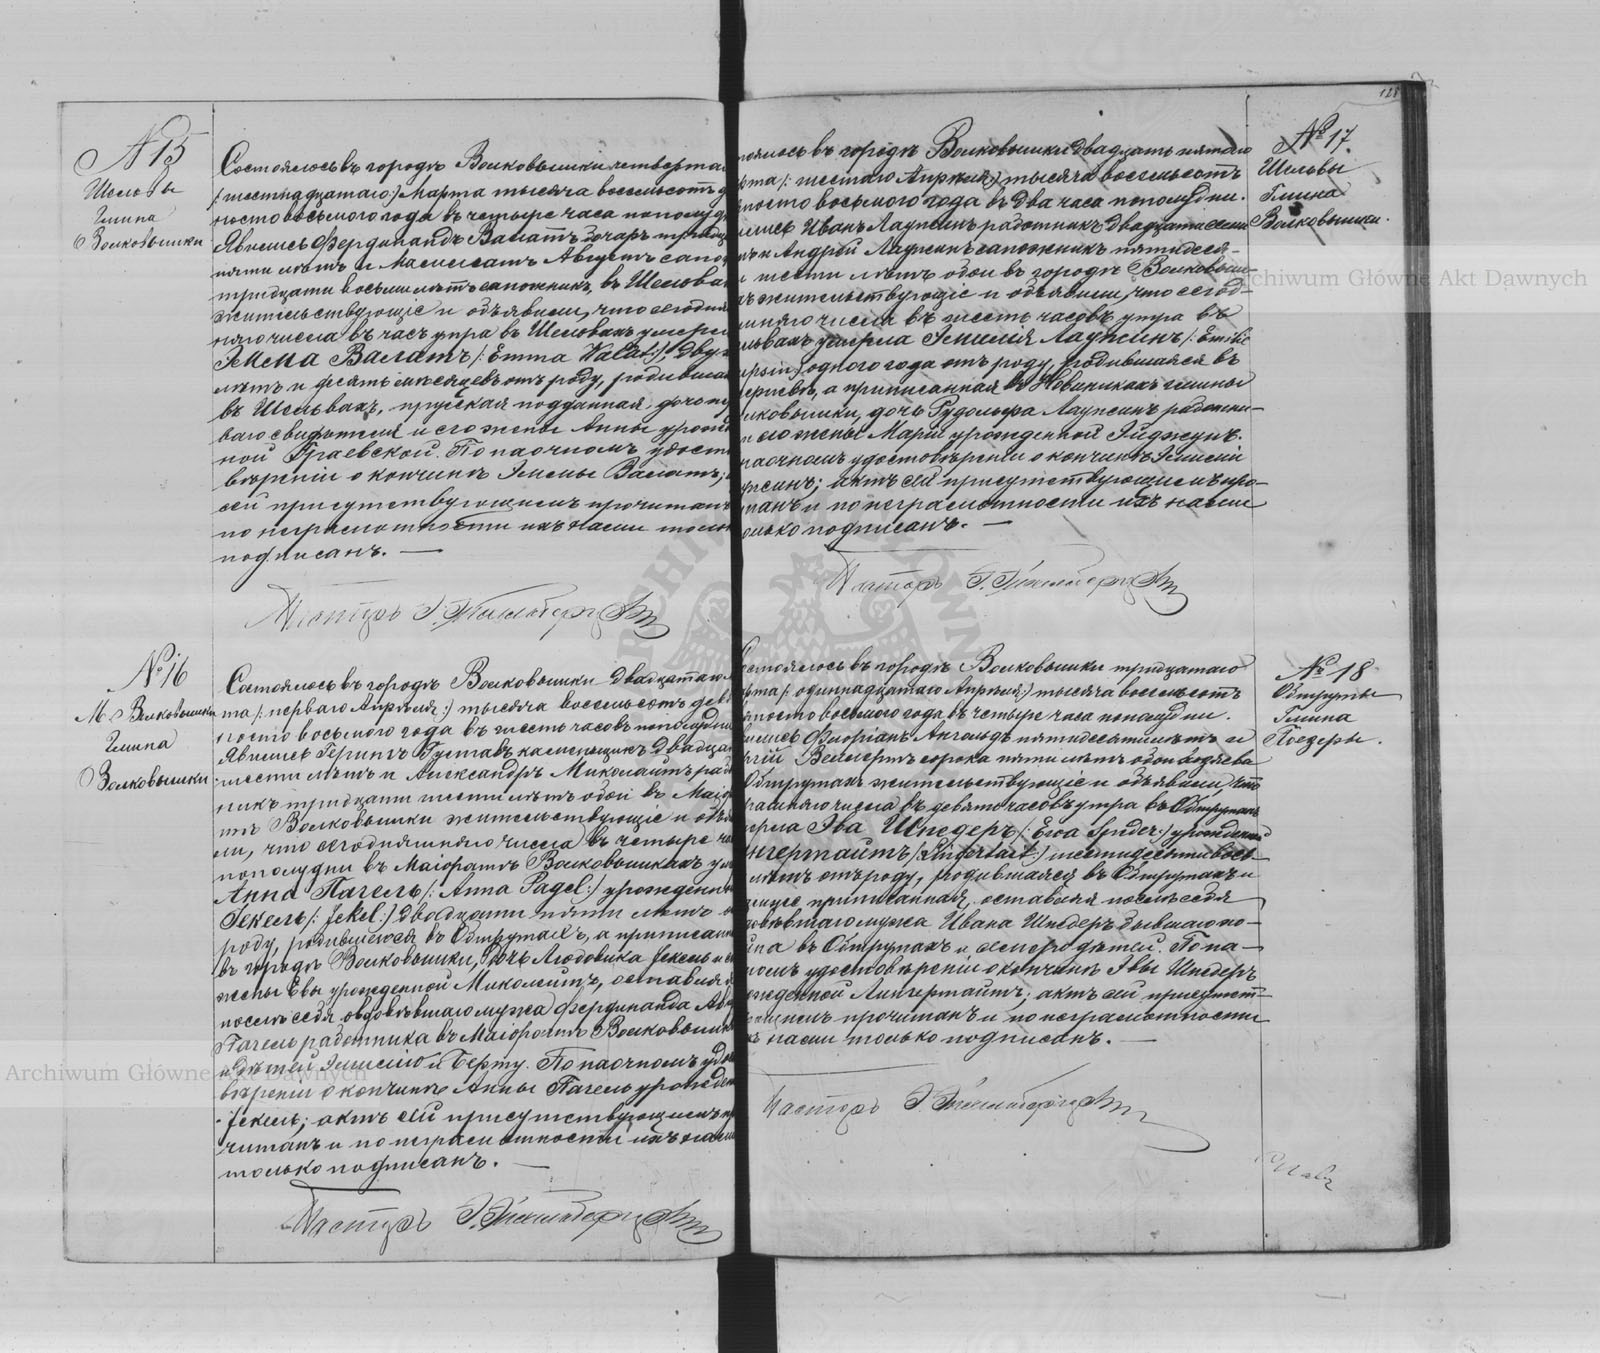 N 15
Шельвы
Гмина
Волковышки
Состоялось въ городѣ Волковышки четвертаго
/:шестнадцатаго:/ Марта тысяча восемьсотъ д
носто восьмого года въ четыре часа пополуд
Явились Фердинандъ Валатъ гончаръ тридца
пяти лѣтъ и Августъ сапо
тридцати восьми лѣтъ сапожникъ, въ Шельвах
жительствующіе и объявили, что сегодня
няго числа въ часъ утра въ Шельвахъ умерла
Эмма Валатъ /:Emma Valat:/, двух
лѣтъ и десять мѣсяцевъ отъ роду, родившая
въ Шельвахъ, прусская подданная, дочь пер
ваго свидѣтеля и его жены Анны урожд
ной Граевской. По наочномъ удосто
вѣреніи о кончинѣ Эммы Валатъ;
сей присутствующимъ прочитанъ
по неграмотности ихъ нами толь
подписанъ. —
Пасторъ
№ 16
М. Волковышки
Гмина
Волковышки
Состоялось въ городѣ Волковышки двадцатаго М
та /:перваго Апрѣля:/ тысяча восемьсотъ девя
носто восьмого года въ шесть часовъ пополудни
Явились Густавъ каменщикъ двадца
шести лѣтъ и Александръ Миколайтъ раб
никъ тридцати шести лѣтъ обои въ Маіор
тѣ Волковышки жительствующіе и объя
ли, что сегодняшняго числа въ четыре ча
пополудни въ Маіоратѣ Волковышкахъ ум
Анна Пагель /:Anna Pagel:/ урожденн
Іекель /:Jekel:/ двадцати пяти лѣтъ о
роду, родившаяся въ Обшрутахъ, а приписанн
въ городѣ Волковышки, дочь Людовика Іекель и е
жены Евы урожденной Миколейтъ, оставила
послѣ себя овдовѣвшаго мужа Фердинанда
Пагель работника въ Маіоратѣ Волковышк
и дѣтей Эмилію и Берту. По наочномъ удо
вѣреніи о кончинѣ Анны Пагель урожден
Іекель; актъ сей присутствующимъ пр
читанъ и по неграмотности ихъ нами
только подписанъ. —
Пасторъ
128
№ 17.
Шельвы
Гмина
Волковышки.
тоялось въ городѣ Волковышки двадцать пятаго
рта /:шестаго Апрѣля:/ тысяча восемьсотъ
яносто восьмого года въ два часа пополудни.
ились Иванъ Лаупсинъ работникъ двадцати семи
ъ и Андрей Лаупсинъ сапожникъ пятидеся-
и шести лѣтъ обои въ городѣ Волковыш-
ъ жительствующіе и объявили, что сегод-
шняго числа въ шесть часовъ утра въ
львахъ умерла Эмилія Лаупсинъ /:Emilie
upsin:/ одного года отъ роду, родившаяся въ
а приписанная въ Новиникахъ гмины
лковышки, дочь Рудольфа Лаупсинъ работни-
и его жены Маріи урожденной Эйджунъ.
наочномъ удостовѣреніи о кончинѣ Эмиліи
упсинъ; актъ сей присутствующимъ про-
танъ и по неграмотности ихъ нами
олько подписанъ. —
Пасторъ
№ 18
Обшруты
Гмина
Поезеры.
остоялось въ городѣ Волковышки тридцатаго
рта /:одиннадцатаго Апрѣля:/ тысяча восемьсотъ
яносто восьмого года въ четыре часа пополудни.
вились Флоріанъ Ангольдъ пятидесяти лѣтъ и
сорока пяти лѣтъ обои хозяева
Обшрутахъ жительствующіе и объявили, что
няго числа въ девять часовъ утра въ Обшрутахъ
мерла Эва Шпедеръ /:Ewa Speder:/ урожденная
нгертайтъ /:Lingertait:/ шестидесяти вось-
лѣтъ отъ роду, родившаяся въ Обшрутахъ и
приписанная, оставила послѣ себя
довѣвшаго мужа Ивана Шпедеръ бывшаго хо-
ина въ Обшрутахъ и семеро дѣтей. По на-
номъ удостовѣреніи о кончинѣ Эвы Шпедеръ
ожденной Лингертайтъ; актъ сей присутст-
ющимъ прочитанъ и по неграмотности
ъ нами только подписанъ. —
Пасторъ
Archiwum Główne Akt Dawnych
Archiwum Główne Akt Dawnych